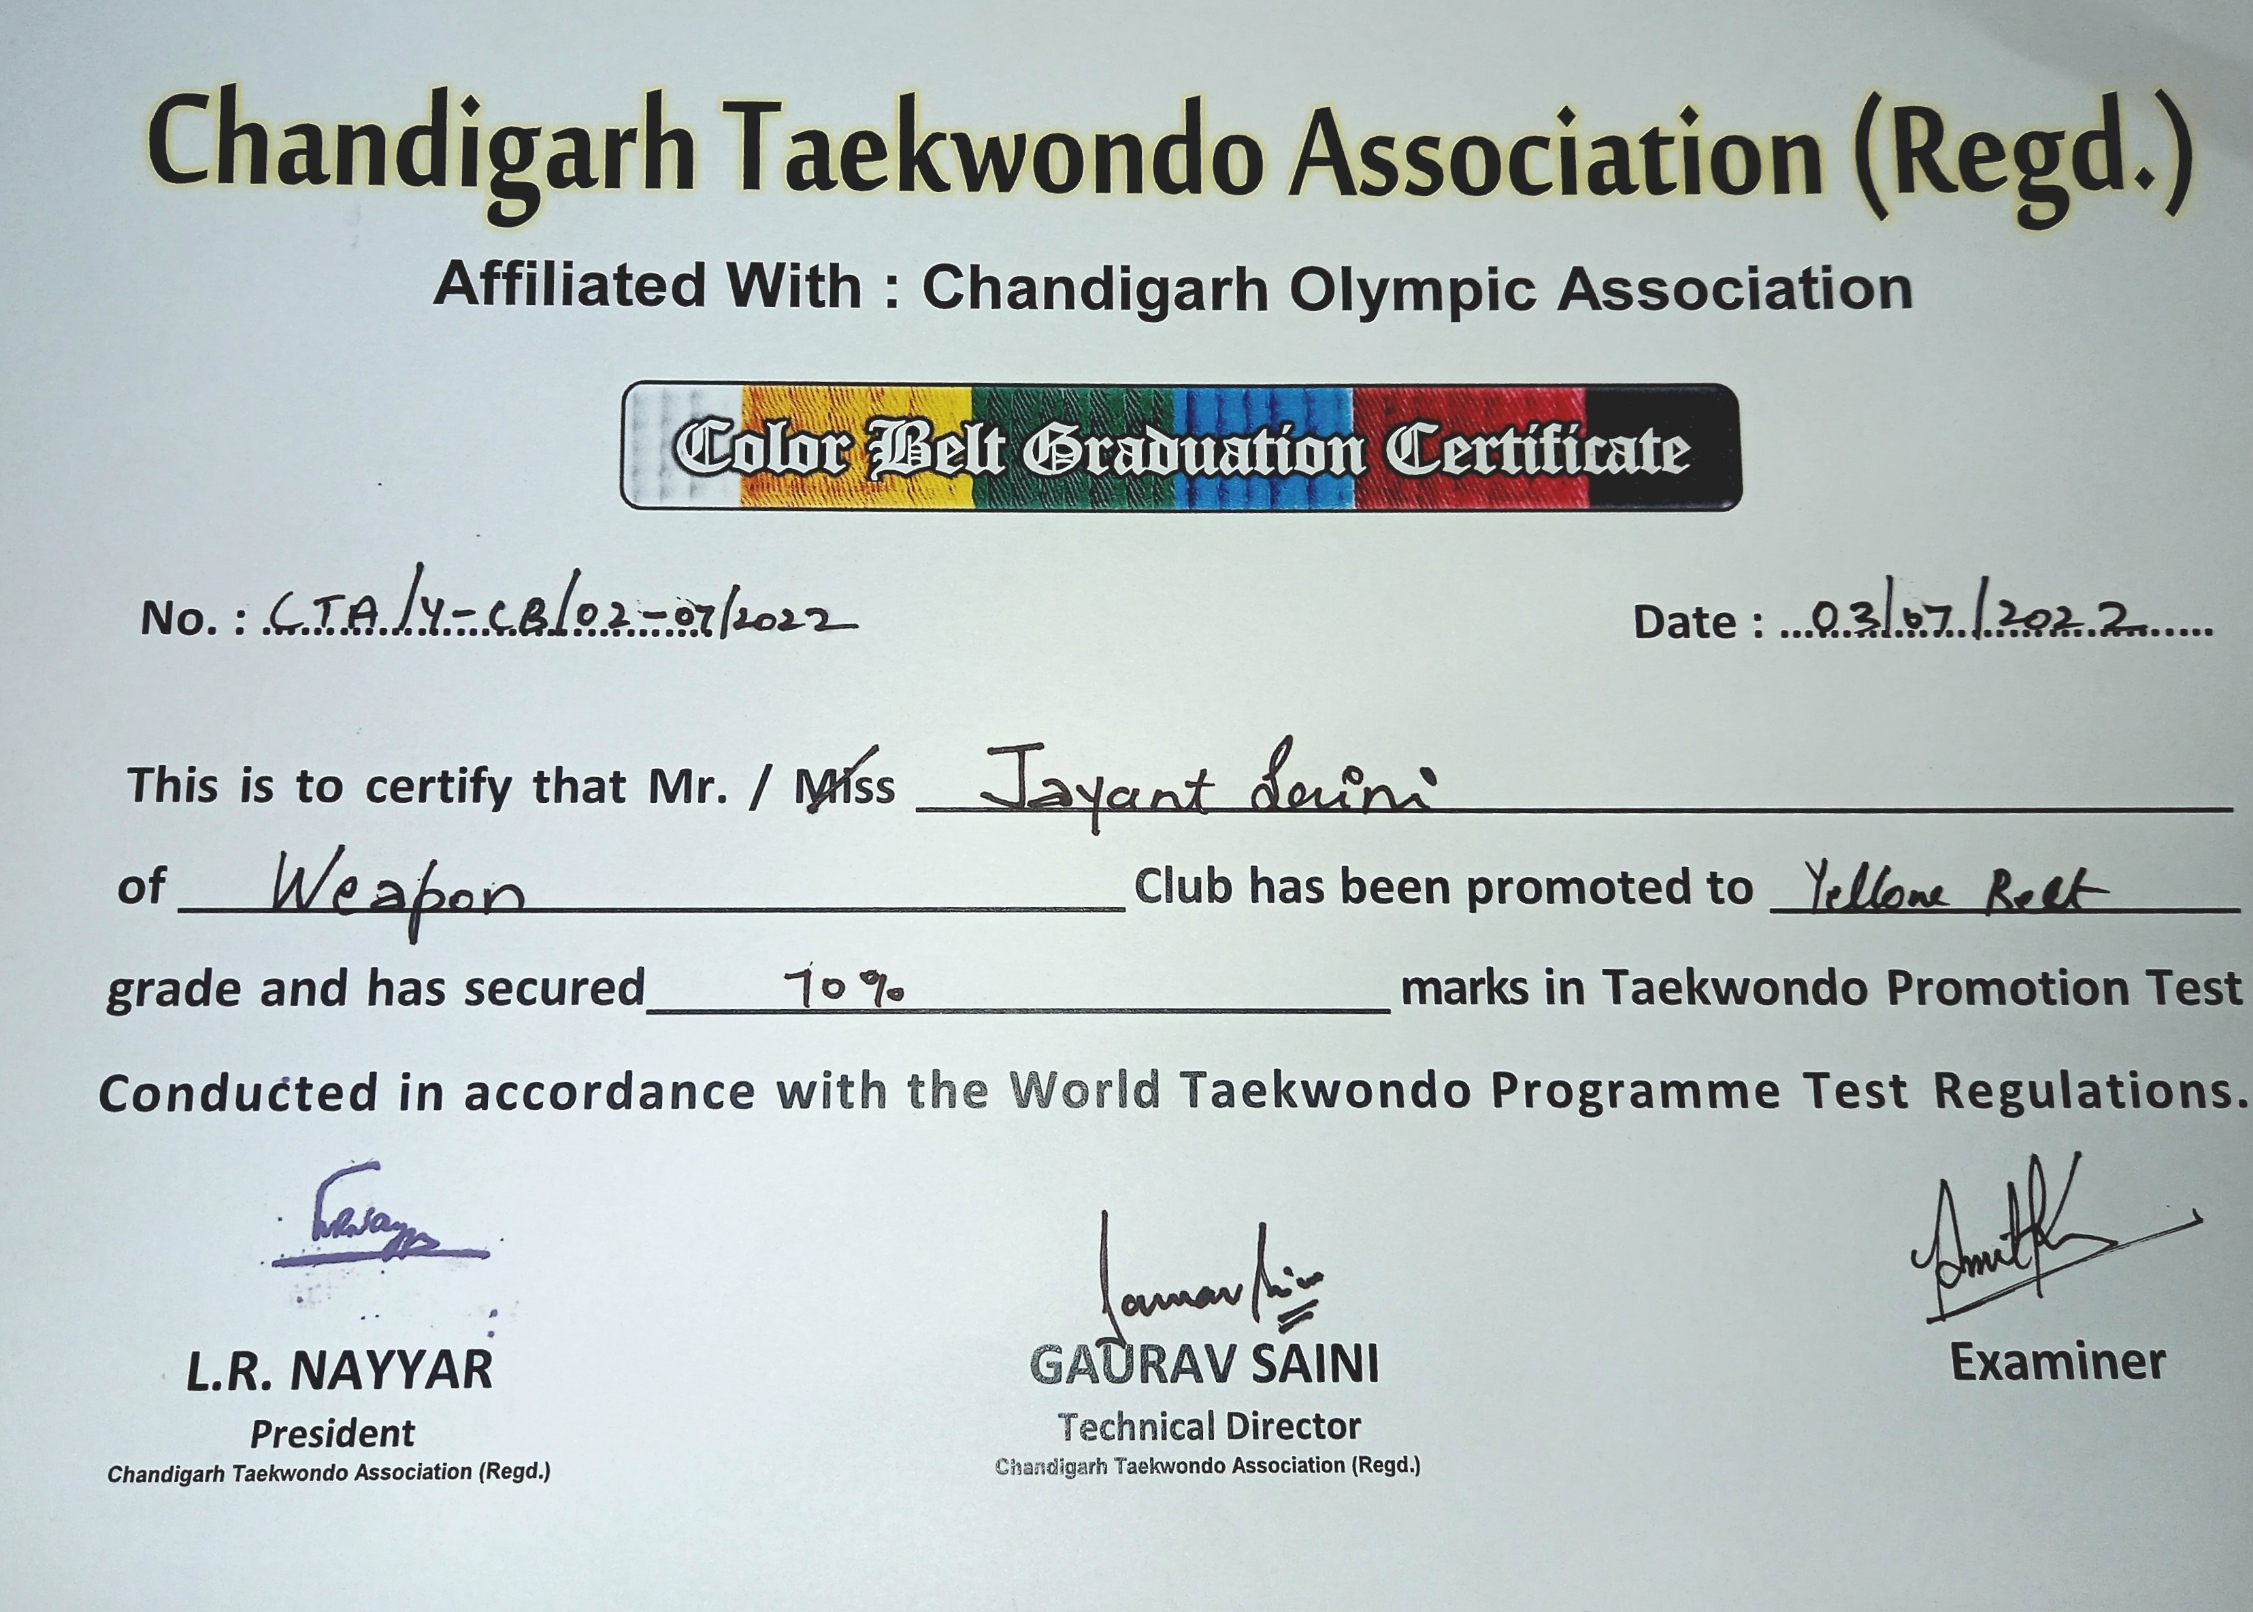 Chandigarh Taekwondo Association (Regd.)
Affiliated With : Chandigarh Olympic Association
Color Belt Graduation Certificate
No. : CTA/Y-CB/02-07/2022 Date : 03/07/2022
This is to certify that Mr. / Miss Jayant Saini
of Weapon Club has been promoted to Yellow Belt
grade and has secured 70% marks in Taekwondo Promotion Test
Conducted in accordance with the World Taekwondo Programme Test Regulations.
L.R. NAYYAR GAURAV SAINI Examiner
President Technical Director
Chandigarh Taekwondo Association (Regd.) Chandigarh Taekwondo Association (Regd.)